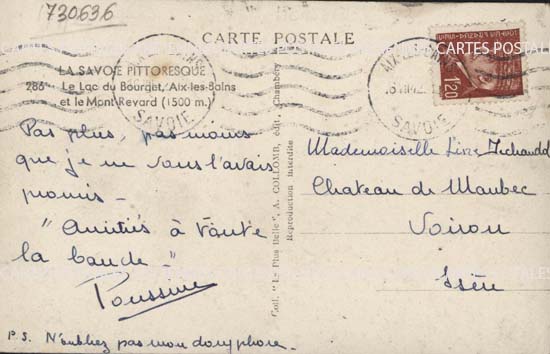 730636
CARTE POSTALE
CARTES POSTALES
LA SAVOIE PITTORESQUE
286 - Le Lac du Bourget, Aix-les-Bains
et le Mont Revard (1500 m.)
AIX-LES-BAINS
SAVOIE
AIX-LES-BAINS
SAVOIE
1f20
Pas plus, pas moins
que je ne vous l'avais
promis -
"Amitiés à toute
la bande -"
Poussine
P.S. N'oubliez pas mon doryphore.
Coll. "La Plus Belle", A. GOLLOMB, édit., Chambéry
Reproduction interdite
Mademoiselle
Chateau de Maubec
Voiron
Isère